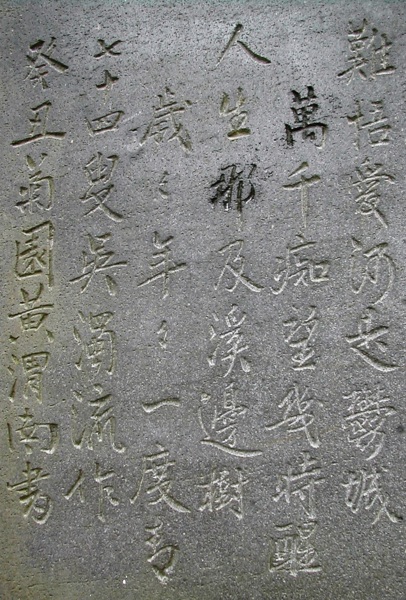 難悟愛河是鬱城
萬千痴望幾時醒
人生那及溪邊樹
歲々年々一度青
七十四叟吳濁流作
癸丑菊園黃渭南書